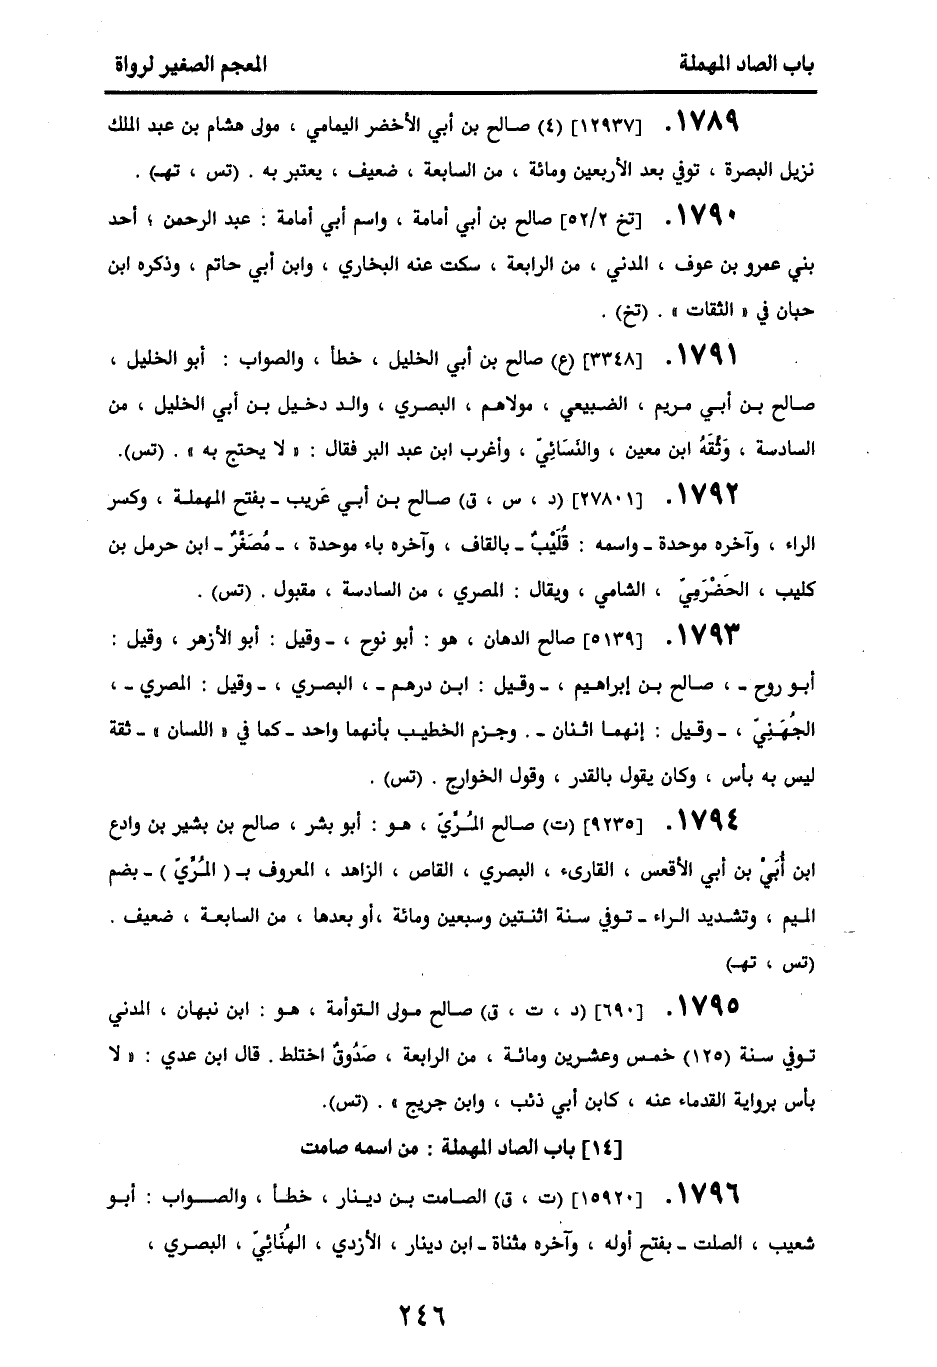 باب الصاد المهملة المعجم الصغير لرواة
١٧٨٩. [١٢٩٣٧] (٤) صالح بن أبي الأخضر اليمامي ، مولى هشام بن عبد الملك
نزيل البصرة ، توفي بعد الأربعين ومائة ، من السابعة ، ضعيف ، يعتبر به . (تس ، تهـ) .
١٧٩٠. [تخ ٥٢/٢] صالح بن أبي أمامة ، واسم أبي أمامة : عبد الرحمن ؛ أحد
بني عمرو بن عوف ، المدني ، من الرابعة ، سكت عنه البخاري ، وابن أبي حاتم ، وذكره ابن
حبان في « الثقات » . (تخ) .
١٧٩١. [٣٣٤٨] (ع) صالح بن أبي الخليل ، خطأ ، والصواب : أبو الخليل ،
صالح بن أبي مريم ، الضبيعي ، مولاهم ، البصري ، والد دخيل بن أبي الخليل ، من
السادسة ، وَثَّقَهُ ابن معين ، والنَسَائِيّ ، وأغرب ابن عبد البر فقال : « لا يحتج به » . (تس).
١٧٩٢. [٢٧٨٠١] (د ، س ، ق) صالح بن أبي عَريب ـ بفتح المهملة ، وكسر
الراء ، وآخره موحدة ـ واسمه : قُلَيْبٌ ـ بالقاف ، وآخره باء موحدة ، ـ مُصَغَّرٌ ـ ابن حرمل بن
كليب ، الحَضْرَمِيّ ، الشامي ، ويقال : المصري ، من السادسة ، مقبول . (تس) .
١٧٩٣. [٥١٣٩] صالح الدهان ، هو : أبو نوح ، ـ وقيل : أبو الأزهر ، وقيل :
أبو روح ـ ، صالح بن إبراهيم ، ـ وقيل : ابن درهم ـ ، البصري ، ـ وقيل : المصري ـ ،
الجُهَنِيّ ، ـ وقيل : إنهما اثنان ـ . وجزم الخطيب بأنهما واحد ـ كما في « اللسان » ـ ثقة
ليس به بأس ، وكان يقول بالقدر ، وقول الخوارج . (تس) .
١٧٩٤. [٩٢٣٥] (ت) صالح المُرِّيّ ، هو : أبو بشر ، صالح بن بشير بن وادع
ابن أُبَيّ بن أبي الأقعس ، القارىء ، البصري ، القاص ، الزاهد ، المعروف بـ ( المُرِّيّ ) ـ بضم
الميم ، وتشديد الراء ـ توفي سنة اثنتين وسبعين ومائة ،أو بعدها ، من السابعة ، ضعيف .
(تس ، تهـ)
١٧٩٥. [٦٩٠] (د ، ت ، ق) صالح مولى التوأمة ، هو : ابن نبهان ، المدني
توفي سنة (١٢٥) خمس وعشرين ومائة ، من الرابعة ، صَدُوقٌ اختلط . قال ابن عدي : « لا
بأس برواية القدماء عنه ، كابن أبي ذئب ، وابن جريج » . (تس).
[١٤] باب الصاد المهملة : من اسمه صامت
١٧٩٦. [١٥٩٢٠] (ت ، ق) الصامت بن دينار ، خطأ ، والصواب : أبو
شعيب ، الصلت ـ بفتح أوله ، وآخره مثناة ـ ابن دينار ، الأزدي ، الهُنَائِيّ ، البصري ،
٢٤٦